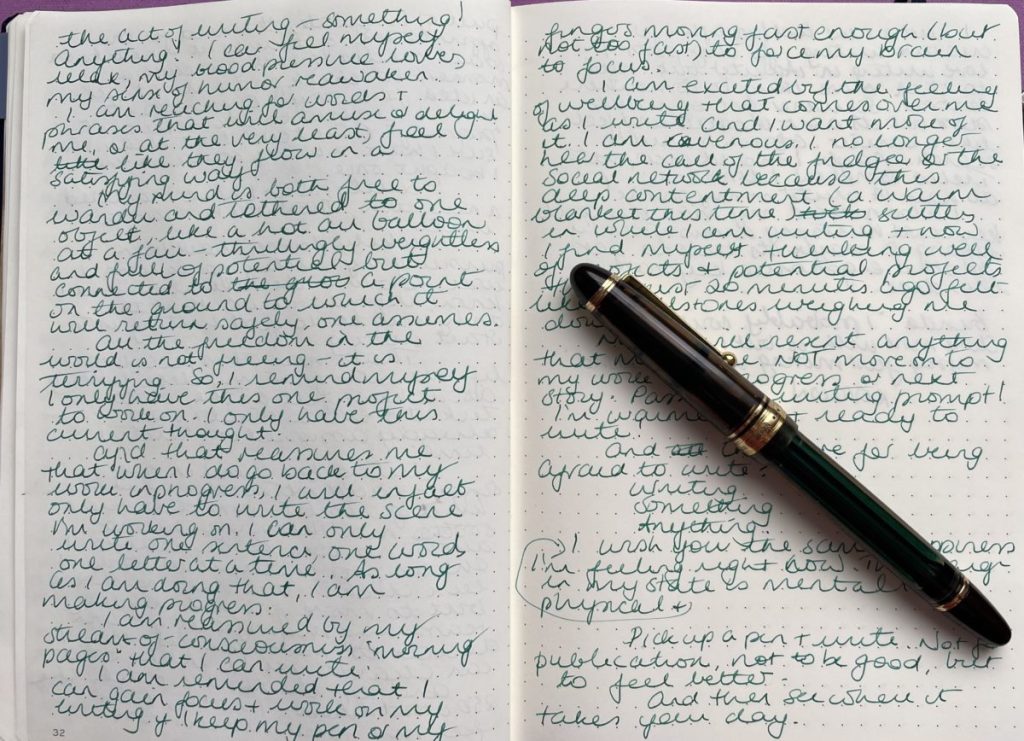 the act of writing – something!
anything! I can feel myself
relax, my blood pressure lowers,
my sense of humor reawaken.
I am reaching for words +
phrases that will amuse & delight
me, or at the very least, feel
like they flow in a
satisfying way.
My mind is both free to
wander and tethered to one
object, like a hot air balloon
at a fair – thrillingly weightless
and full of potential but
connected to a point
on the ground to which it
will return safely, one assumes.
All the freedom in the
world is not freeing – it is
terrifying. So, I remind myself
I only have this one project
to work on. I only have this
current thought.
And that reassures me
that when I do go back to my
work in progress, I will in fact
only have to write the scene
I'm working on. I can only
write one sentence, one word,
one letter at a time... As long
as I am doing that, I am
making progress.
I am reassured by my
stream-of-consciousness 'morning
pages' that I can write.
I am reminded that I
can gain focus + work on my
writing if I keep my pen or my
32
fingers moving fast enough (but
not too fast) to force my brain
to focus.
I am excited by the feeling
of wellbeing that comes over me
as I write and I want more of
it. I am ravenous. I no longer
hear the call of the fridge or the
social network because this
deep contentment (a warm
blanket this time) settles
in while I am writing + now
I find myself thinking well
of + potential projects
20 minutes ago felt
weighing me
resent anything
that not move on to
my work progress or next
story. writing prompt!
I'm ready to
write.
And for being
afraid to write:
Writing
Something
Anything
I wish you the
I'm feeling right now
in my state is mental
physical +
Pick up a pen + write. Not
publication, not to be good, but
to feel better.
And then see where it
takes your day.